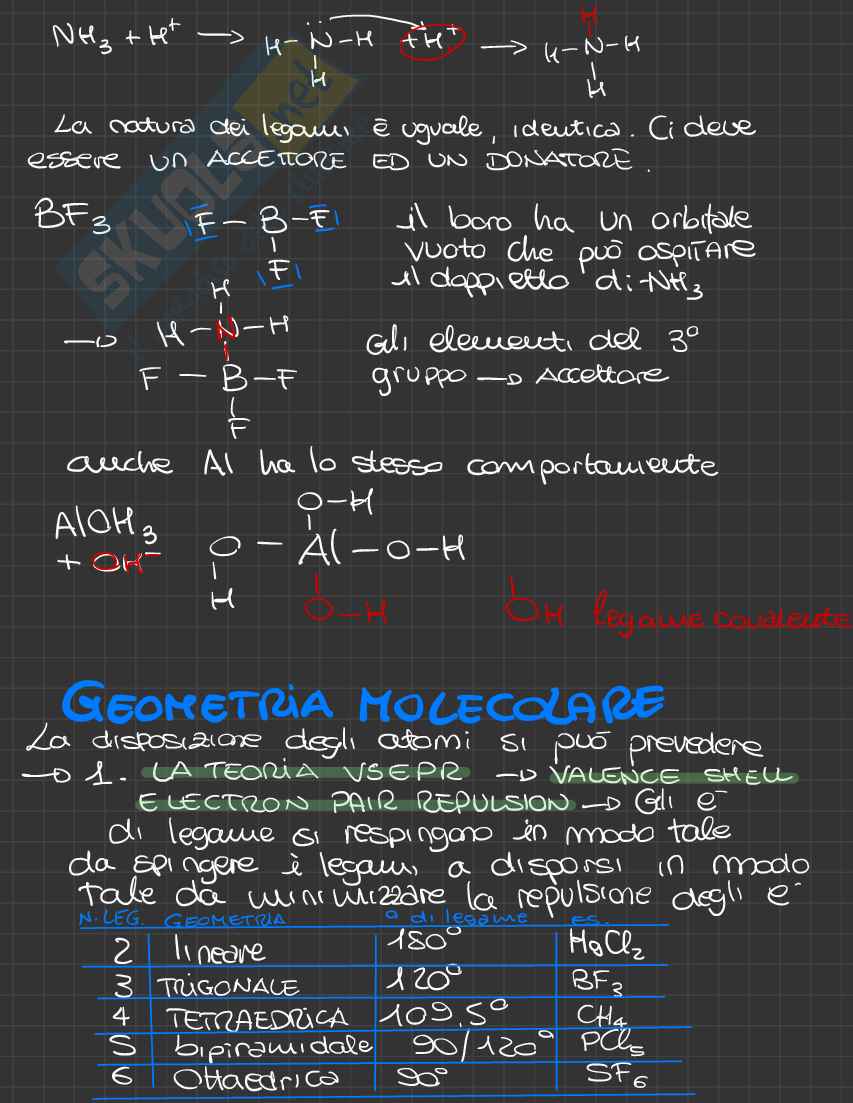 NH3 + H+ → H-N̈-H +H+ → H-N-H
H H H
La natura dei legami è uguale, identica. Ci deve
essere UN ACCETTORE ED UN DONATORE.
BF3 F-B-F il boro ha un orbitale
F vuoto che può ospitare
il doppietto di NH3
H
→ H-N-H Gli elementi del 3°
F-B-F gruppo → Accettore
F
anche Al ha lo stesso comportamente
AlOH3 O-H
+ OH- O-Al-O-H
H O-H OH legame covalente
GEOMETRIA MOLECOLARE
La disposizione degli atomi si può prevedere
→ 1. LA TEORIA VSEPR → VALENCE SHELL
ELECTRON PAIR REPULSION → Gli e-
di legame si respingono in modo tale
da spingere i legami a disporsi in modo
tale da minimizzare la repulsione degli e-
N. LEG. GEOMETRIA ° di legame ES.
2 lineare 180° HgCl2
3 TRIGONALE 120° BF3
4 TETRAEDRICA 109.5° CH4
5 bipiramidale 90/120° PCl5
6 Ottaedrica 90° SF6
SKUOLA.net